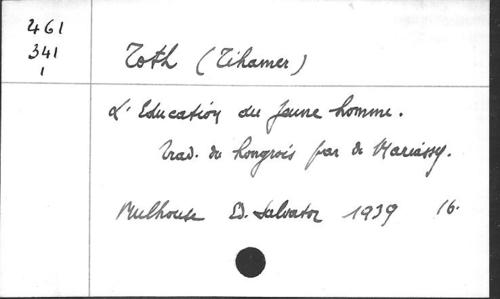 461
341
1
Toth (Tihamer)
L'Education du jeune homme.
trad. du hongrois par de Mariassy.
Mulhouse Ed. Salvator 1939 16.